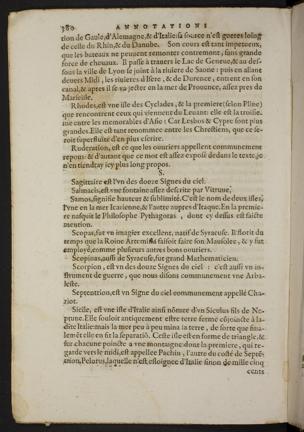 380 ANNOTATIONS
tion de Gaule, d'Alemagne, & d'Italie: sa source n'est gueres loing
de celle du Rhin, & du Danube. Son cours est tant impetueux,
que les bateaux ne peuuent remonter contremont, sans grande
force de cheuaux. Il passe à trauers le Lac de Geneue, & au des-
sous la ville de Lyon se joint à la riuiere de Saone: puis en allant
deuers Midi, les riuieres d'Isere, & de Durence, entrent en son
canal, & apres il se va jecter en la mer de Prouence, assez pres de
Marseille.
Rhodes, est vne isle des Cyclades, & la premiere (selon Pline)
que rencontrent ceux qui viennent du Leuant: elle est la troisie-
me entre les memorables d'Asie: Car Lesbos & Cypre sont plus
grandes. Elle est tant renommee entre les Chrestiens, que ce se-
roit superfluité d'en plus escrire.
Ruderation, est ce que les ouuriers appellent communement
repous: & d'autant que ce mot est assez exposé dedans le texte, je
n'en tiendray icy plus long propos.
S.
Sagittaire est l'vn des douze Signes du ciel.
Salmach, est vne fontaine assez descrite par Vitruue.
Samos, signifie hauteur & sublimité. C'est le nom de deux isles,
l'vne en la mer Icarienne, & l'autre aupres d'Itaque. En la premie-
re nasquit le Philosophe Pythagoras, dont cy dessus est faicte
mention.
Scopas, fut vn imagier excellent, natif de Syracuse. Il florit du
temps que la Roine Artemise faisoit faire son Mausolee, & y fut
employé, comme plusieurs autres bons ouuriers.
Scopinas, aussi de Syracuse, fut grand Mathematicien.
Scorpion, est vn des douze Signes du ciel: c'est aussi vn in-
strument de guerre, que nous disons communement vne Arba-
leste.
Septentrion, est vn Signe du ciel communement appellé Cha-
riot.
Sicile, est vne isle d'Italie ainsi nommee d'vn Siculus fils de Ne-
ptune. Elle souloit antiquement estre terre ferme cõjoincte à la-
dite Italie: mais la mer peu à peu mina la terre, de sorte que fina-
lemẽt elle en fit la separatiõ. Ceste isle est en forme de triangle, &
sur chacune poincte a vne montaigne dont la premiere, qui re-
garde vers le midi, est appellee Pachin, l'autre du costé de Septẽ-
trion, Pelorus, laquelle n'est esloignee d'Italie sinon de mille cinq
cents